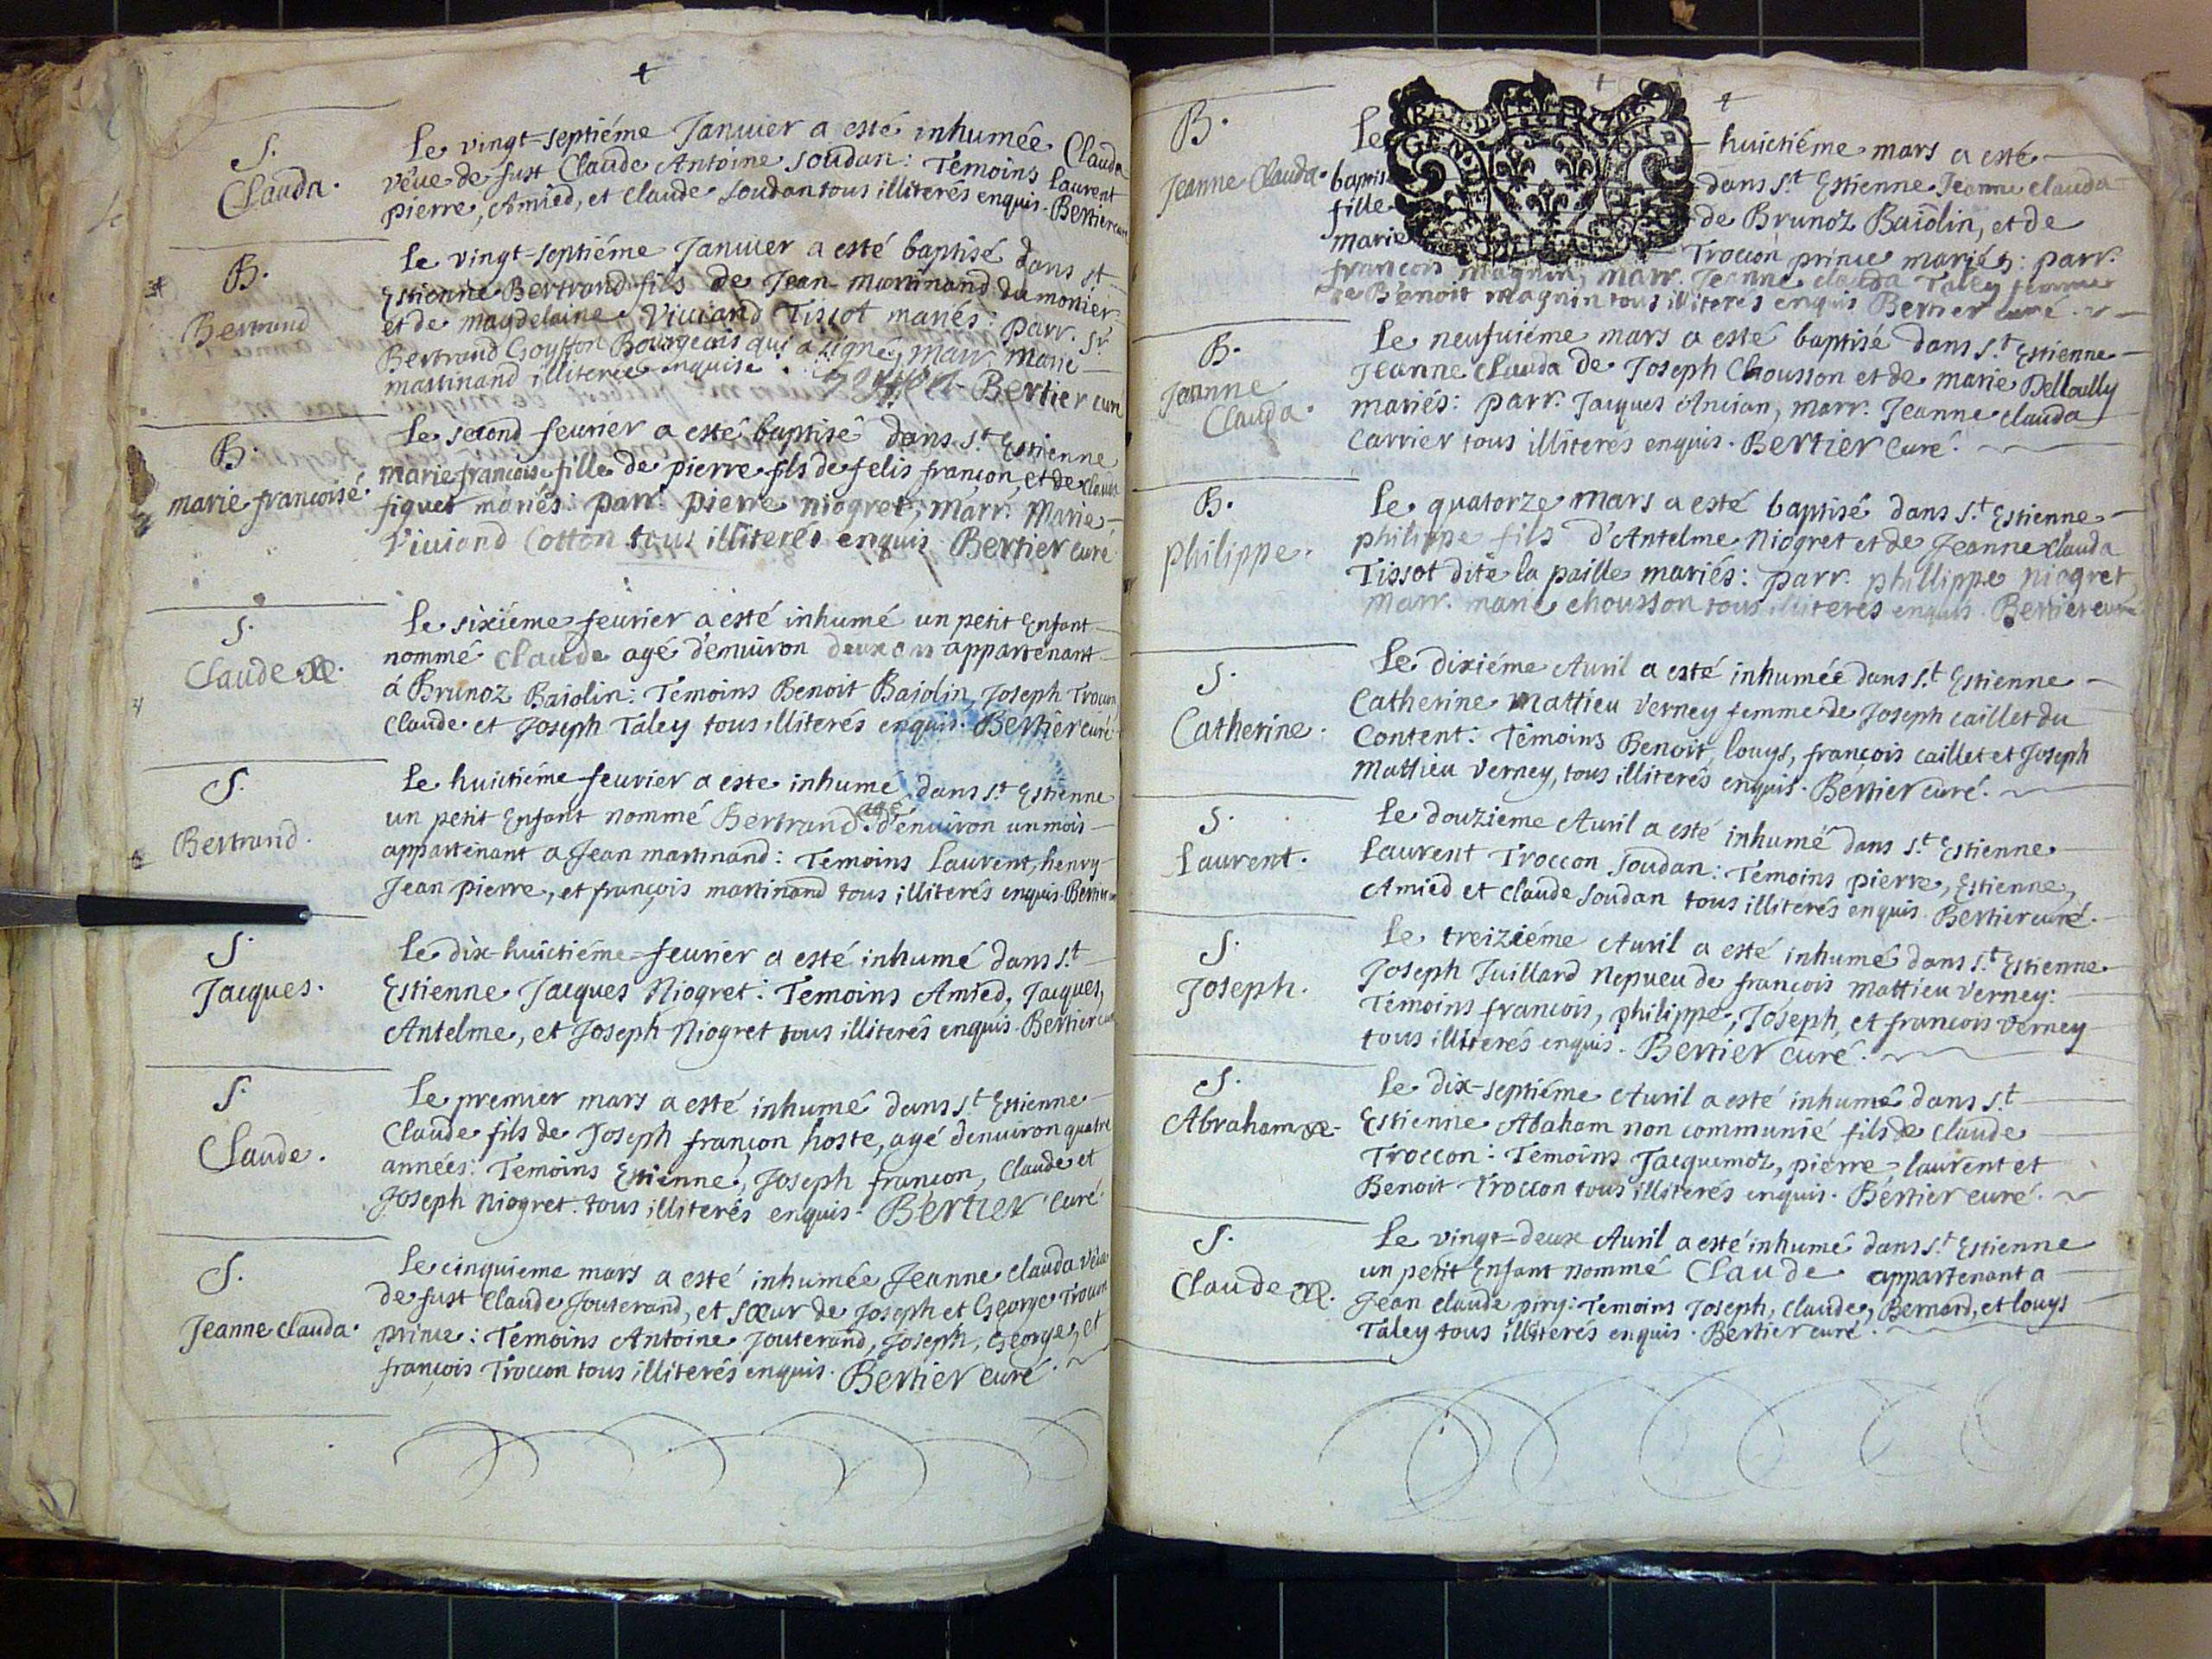 S.
Clauda.
Le vingt-septiéme Januier a esté inhumée Clauda
véue de fust Claude Antoine Soudan: Temoins Laurent
pierre, Amied, et Claude Soudan tous illiterés enquis. Bertier curé
B.
Bertrand
Le vingt-septiéme Januier a esté baptisé dans st
Estienne Bertrand fils de Jean martinand du monier
et de magdelaine Viuiand Tissot mariés: parr. Sr.
Bertrand Goyffon Bourgeois qui a signé, marr. marie
martinand illiterée enquise. Bertier curé
B.
marie françoise.
Le second feurier a esté baptisé dans s.t Estienne
marie françoise fille de pierre fils de felis françon, et de Clauda
figuet mariés: parr. pierre niogret, marr. Marie
Viuiand Cotton tous illiterés enquis Bertier curé
S.
Claude
Le sixiéme feurier a esté inhumé un petit Enfant
nommé Claude agé d'enuiron deux ans appartenant
á Brunoz Baiolin: Temoins Benoit Baiolin, Joseph Troccon
Claude et Joseph Taley tous illiterés enquis. Bertier curé
S.
Bertrand.
Le huictiéme feurier a este inhumé dans s.t Estienne
un petit Enfant nommé Bertrand agé d'enuiron un mois
appartenant a Jean martinand: Temoins Laurent, henry
Jean pierre, et françois martinand tous illiterés enquis. Bertier curé
S.
Jacques.
Le dix-huictiéme feurier a esté inhumé dans s.t
Estienne Jacques Niogret: Temoins Amied, Jacques,
Antelme, et Joseph Niogret tous illiterés enquis. Bertier curé
S.
Claude.
Le premier mars a esté inhumé dans s.t Estienne
Claude fils de Joseph françon hoste, agé denuiron quatre
années: Temoins Estienne, Joseph françon, Claude et
Joseph Niogret. tous illiterés enquis. Bertier curé.
S.
Jeanne Clauda.
Le cinquieme mars a esté inhumée Jeanne Clauda véue
de fust Claude Jouterand, et sœur de Joseph et George Troccon
prince: Temoins Antoine Jouterand, Joseph, George, et
françois Troccon tous illiterés enquis. Bertier curé.
B.
Jeanne Clauda.
Le huictiéme mars a esté
baptis dans s.t Estienne Jeanne Clauda
fille de Brunoz Baiolin, et de
marie Troccon prince mariés: parr.
françois magnin, marr. Jeanne Clauda Taley femme
de Benoit magnin tous illiterés enquis Bertier curé.
B.
Jeanne
Clauda.
Le neufuiéme mars a esté baptisé dans s.t Estienne
Jeanne Clauda de Joseph Chousson et de marie Dellally
mariés: parr. Jacques Ancian, marr. Jeanne Clauda
Carrier tous illiterés enquis. Bertier Curé.
B.
philippe.
Le quatorze mars a esté baptisé dans s.t Estienne
philippe fils d'Antelme Niogret et de Jeanne Clauda
Tissot dite la paille mariés: parr. phillippe niogret
marr. marie chousson tous illiterés enquis. Bertier curé
S.
Catherine.
Le dixiéme Auril a esté inhumée dans s.t Estienne
Catherine Mattieu Verney femme de Joseph caillet du
Content: Témoins Benoit, louys, françois caillet et Joseph
Mattieu Verney, tous illiterés enquis. Bertier curé.
S.
Laurent.
Le douzieme Auril a esté inhumé dans s.t Estienne
Laurent Troccon Soudan: Témoins pierre, Estienne,
Amied et Claude Soudan tous illiterés enquis Bertier curé.
S.
Joseph.
Le treiziéme Auril a esté inhumé dans s.t Estienne
Joseph Juillard nepueu de françois mattieu Verney:
Témoins françois, philippe, Joseph, et françois Verney
tous illiterés enquis. Bertier curé.
S.
Abraham
Le dix-septiéme Auril a esté inhumé dans s.t
Estienne Abaham non communié fils de Claude
Troccon: Témoins Jacquemoz, pierre, laurent et
Benoit Troccon tous illiterés enquis. Bertier curé.
S.
Claude
Le vingt-deux Auril a esté inhumé dans s.t Estienne
un petit Enfant nommé Claude appartenant a
Jean Claude piry: Temoins Joseph, Claude, Bernard, et louys
Taley tous illiterés enquis. Bertier curé.